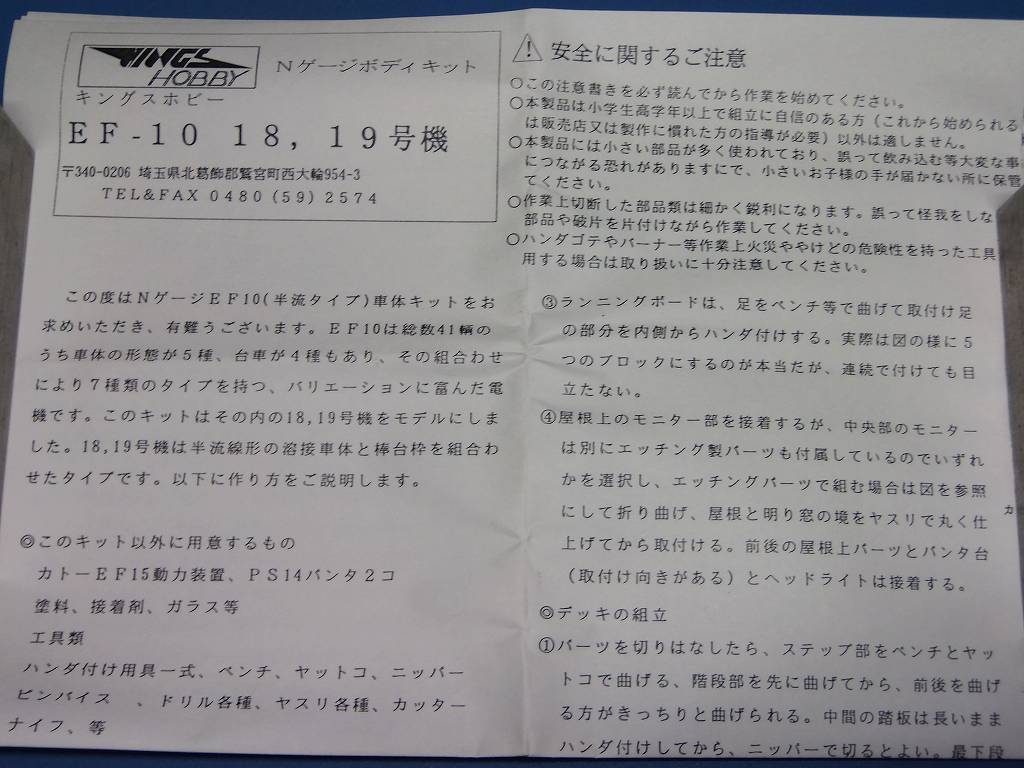 KINGS
HOBBY
Nゲージボディキット
キングスホビー
EF-10 18, 19号機
〒340-0206 埼玉県北葛飾郡鷲宮町西大輪954-3
TEL&FAX 0480 (59) 2574
この度はNゲージEF10(半流タイプ)車体キットをお
求めいただき、有難うございます。EF10は総数41輌の
うち車体の形態が5種、台車が4種もあり、その組合わせ
により7種類のタイプを持つ、バリエーションに富んだ電
機です。このキットはその内の18,19号機をモデルにしま
した。18,19号機は半流線形の溶接車体と棒台枠を組合わ
せたタイプです。以下に作り方をご説明します。
◎このキット以外に用意するもの
カトーEF15動力装置、PS14パンタ2コ
塗料、接着剤、ガラス等
工具類
ハンダ付け用具一式、ペンチ、ヤットコ、ニッパー
ピンバイス 、ドリル各種、ヤスリ各種、カッター
ナイフ、等
安全に関するご注意
○この注意書きを必ず読んでから作業を始めてください。
○本製品は小学生高学年以上で組立に自信のある方(これから始められる
は販売店又は製作に慣れた方の指導が必要)以外は適しません。
○本製品には小さい部品が多く使われており、誤って飲み込む等大変な事
につながる恐れがありますにで、小さいお子様の手が届かない所に保管
てください。
○作業上切断した部品類は細かく鋭利になります。誤って怪我をしな
部品や破片を片付けながら作業してください。
○ハンダゴテやバーナー等作業上火災ややけどの危険性を持った工具
用する場合は取り扱いに十分注意してください。
③ランニングボードは、足をペンチ等で曲げて取付け足
の部分を内側からハンダ付けする。実際は図の様に5
つのブロックにするのが本当だが、連続で付けても目
立たない。
④屋根上のモニター部を接着するが、中央部のモニター
は別にエッチング製パーツも付属しているのでいずれ
かを選択し、エッチングパーツで組む場合は図を参照
にして折り曲げ、屋根と明り窓の境をヤスリで丸く仕
上げてから取付ける。前後の屋根上パーツとパンタ台
(取付け向きがある)とヘッドライトは接着する。
◎デッキの組立
①パーツを切りはなしたら、ステップ部をペンチとヤッ
トコで曲げる、階段部を先に曲げてから、前後を曲げ
る方がきっちりと曲げられる。中間の踏板は長いまま
ハンダ付けしてから、ニッパーで切るとよい。最下段
カ